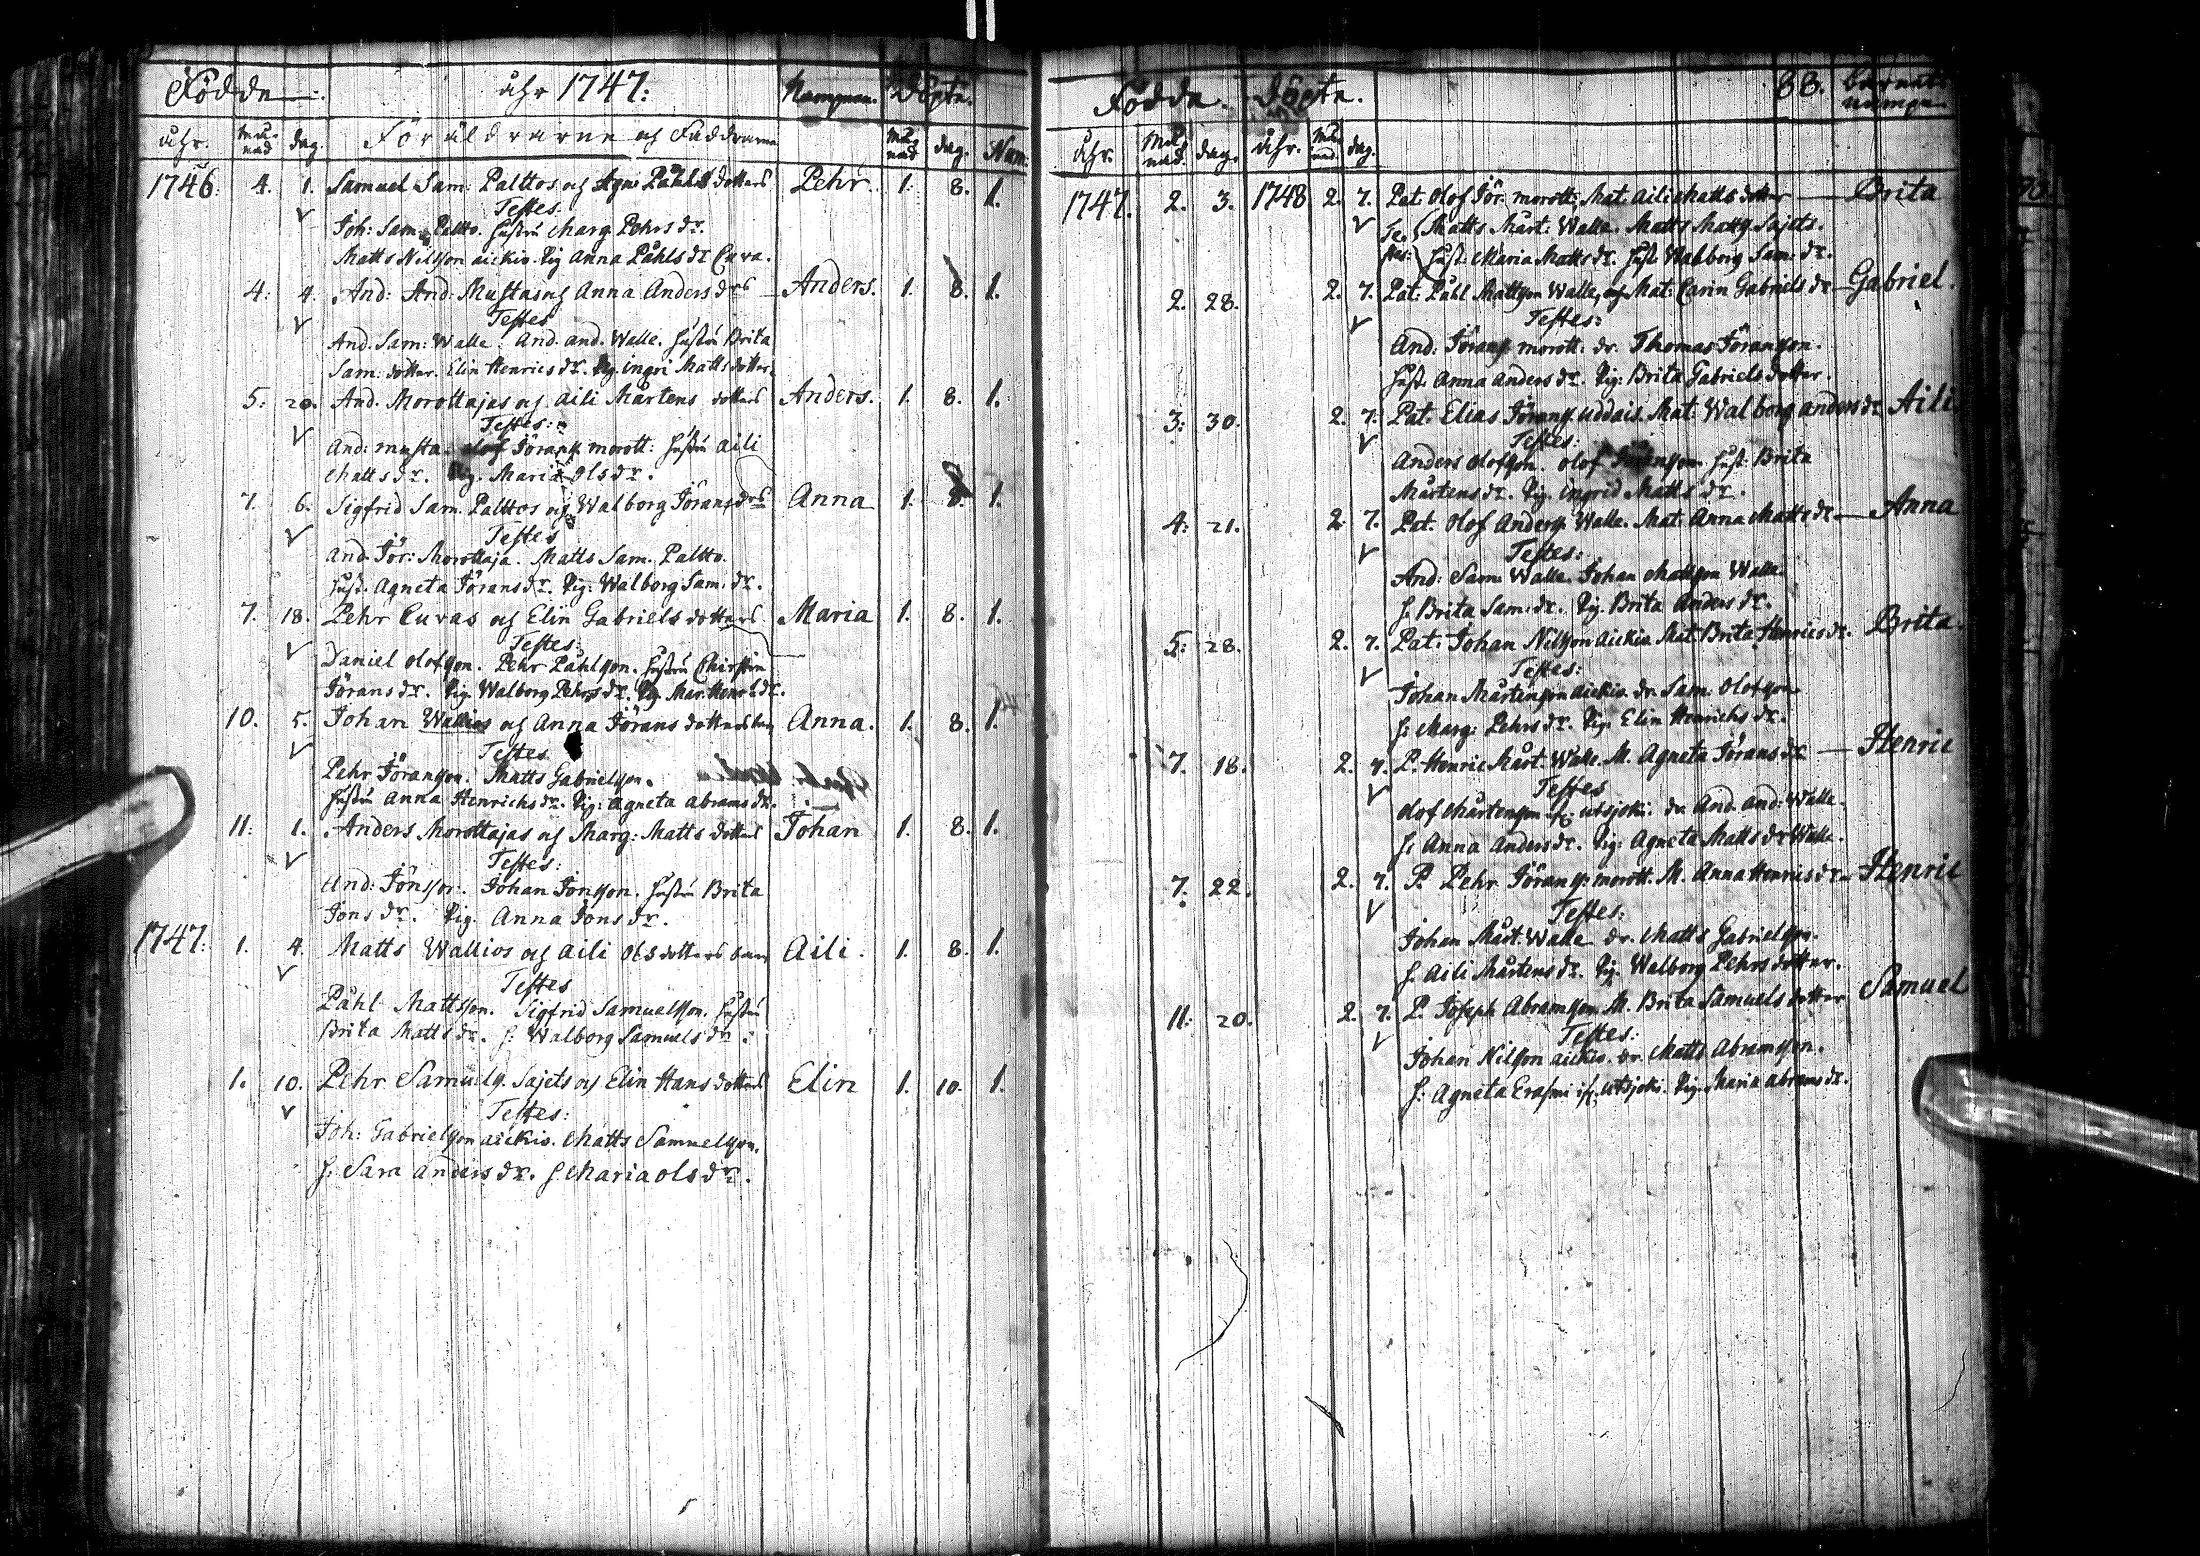 Födde åhr 1747: Nampnen. Döpte.
åhr. må-nad dag. Föräldrarne og Faddrarne må-nad dag. Num.
1746 4. 1. Samuel Sam. Palttos og Agn. Påhls dotters Pehr. 1. 8. 1.
Testes
Joh: Sam. Paltto. hustru Marg. Pehrs dr.
Matts Nilsson aickio. Pig. Anna Påhls dr Cuva.
4. 4. And: And: Mustas og Anna Anders drs Anders. 1. 8. 1.
Testes
And. Sam: Walle. And. and. Walle. hustru Brita
Sam: dotter. Elin Henrics dr. Pig. ingri Matts dotter.
5: 20. And. Morottajas og Aili Mårtens dotters Anders. 1. 8. 1.
Testes:
And: musta. olof Jöransson morott: hustru Aili
Matts dr. Pig. Maria Ols dr.
7. 6. Sigfrid Sam. Palttos og Walborg Jörans drs Anna 1. 8. 1.
Testes
And. Jör: Morottaja. Matts Sam. Paltto.
hust. Agneta Jörans dr. Pig: Walborg Sam. dr.
7. 18. Pehr Cuvas og Elin Gabriels dotters Maria 1. 8. 1.
Testes:
Daniel olofsson. Pehr Påhlsson. hustru Chirstin
Jörans dr. Pig. Walborg Pehrs dr. Pig. Mar. Henr. dr.
10. 5. Johan Wallios og Anna Jörans dotters barn Anna. 1. 8. 1.
Testes
Pehr Jöransson. Matts Gabrielsson.
hustru Anna Henrichs dr. Pig: Agneta abrams dr.
11: 1. Anders Morottajas og Marg: Matts dotters Johan 1. 8. 1.
Testes:
And: Jönsson. Johan Jonsson. hustru Brita
Jons dr. Pig. Anna Jons dr.
1747: 1. 4. Matts Wallios og Aili Ols dotters barn Aili. 1. 8. 1.
Testes
Påhl Mattsson. Sigfrid Samuelsson. hustru
Brita Matts dr. h: Walborg Samuels dr.
1. 10. Pehr Samuelss. Sajets og Elin Hans dotters Elin 1. 10. 1.
Testes:
Joh: Gabrielsson aickio. Matts Samuelsson.
h: Sara anders dr. h Maria ols dr.
Födde. Döpte. 88. barnets nampn
åhr. Må-nad. dag. åhr. Må-nad. dag.
1747. 2. 3. 1748 2. 7. Pat. Olof Jör. morott: Mat. Aili Matts dotter Brita
Tes-tes: Matts Mårt. Walle. Matts Mattss. Sajets.
hust. Maria Matts dr. hust. Walborg Sam. dr.
2. 28. 2. 7. Pat: Påhl Mattsson Walle, og Mat: Carin Gabriels dr Gabriel.
Testes:
And: Jöranss. morott: dr. Thomas Jöransson.
hust. Anna anders dr. Pig: Brita Gabriels dotter.
3: 30. 2. 7. Pat. Elias Jöranss. uddais. Mat. Walborg anders dr Aili
Testes:
Anders olofsson. olof hust. Brita
Mårtens dr. Pig. ingrid Matts dr.
4: 21. 2. 7. Pat. Olof Anderss. Walle. Mat. Anna Matts dr Anna
Testes:
And: Sam. Walle. Johan Mattsson Walle.
h. Brita Sam: dr. Pig. Brita Anders dr.
5: 28. 2. 7. Pat. Johan Nilsson aickia Mat: Brita Henrics dr. Brita.
Testes:
Johan Mårtensson aickio. dr. Sam. olofsson
h: Marg: Pehrs dr. Pig. Elin Henrichs dr.
7. 18. 2. 7. P. Henric Mårt. Walle. M. Agneta Jörans dr Henric
Testes
olof Mårtensson utsjoki. dr. And. and: Walle.
h: Anna anders dr. Pig: Agneta Matts dr Walle.
7. 22. 2. 7. P. Pehr Jöranss: morott. M. Anna Henrics dr Henric
Testes:
Johan Mårt. Walle dr. Matts Gabrielsson.
h. Aili Mårtens dr. Pig. Walborg Pehrs dotter.
11: 20. 2. 7. P. Joseph Abramsson M. Brita Samuels dotter Samuel
Testes:
Johan Nilsson aickio. dr. Matts Abramsson.
h: Agneta Erasmi utsjoki. Pig. Maria abrams dr.